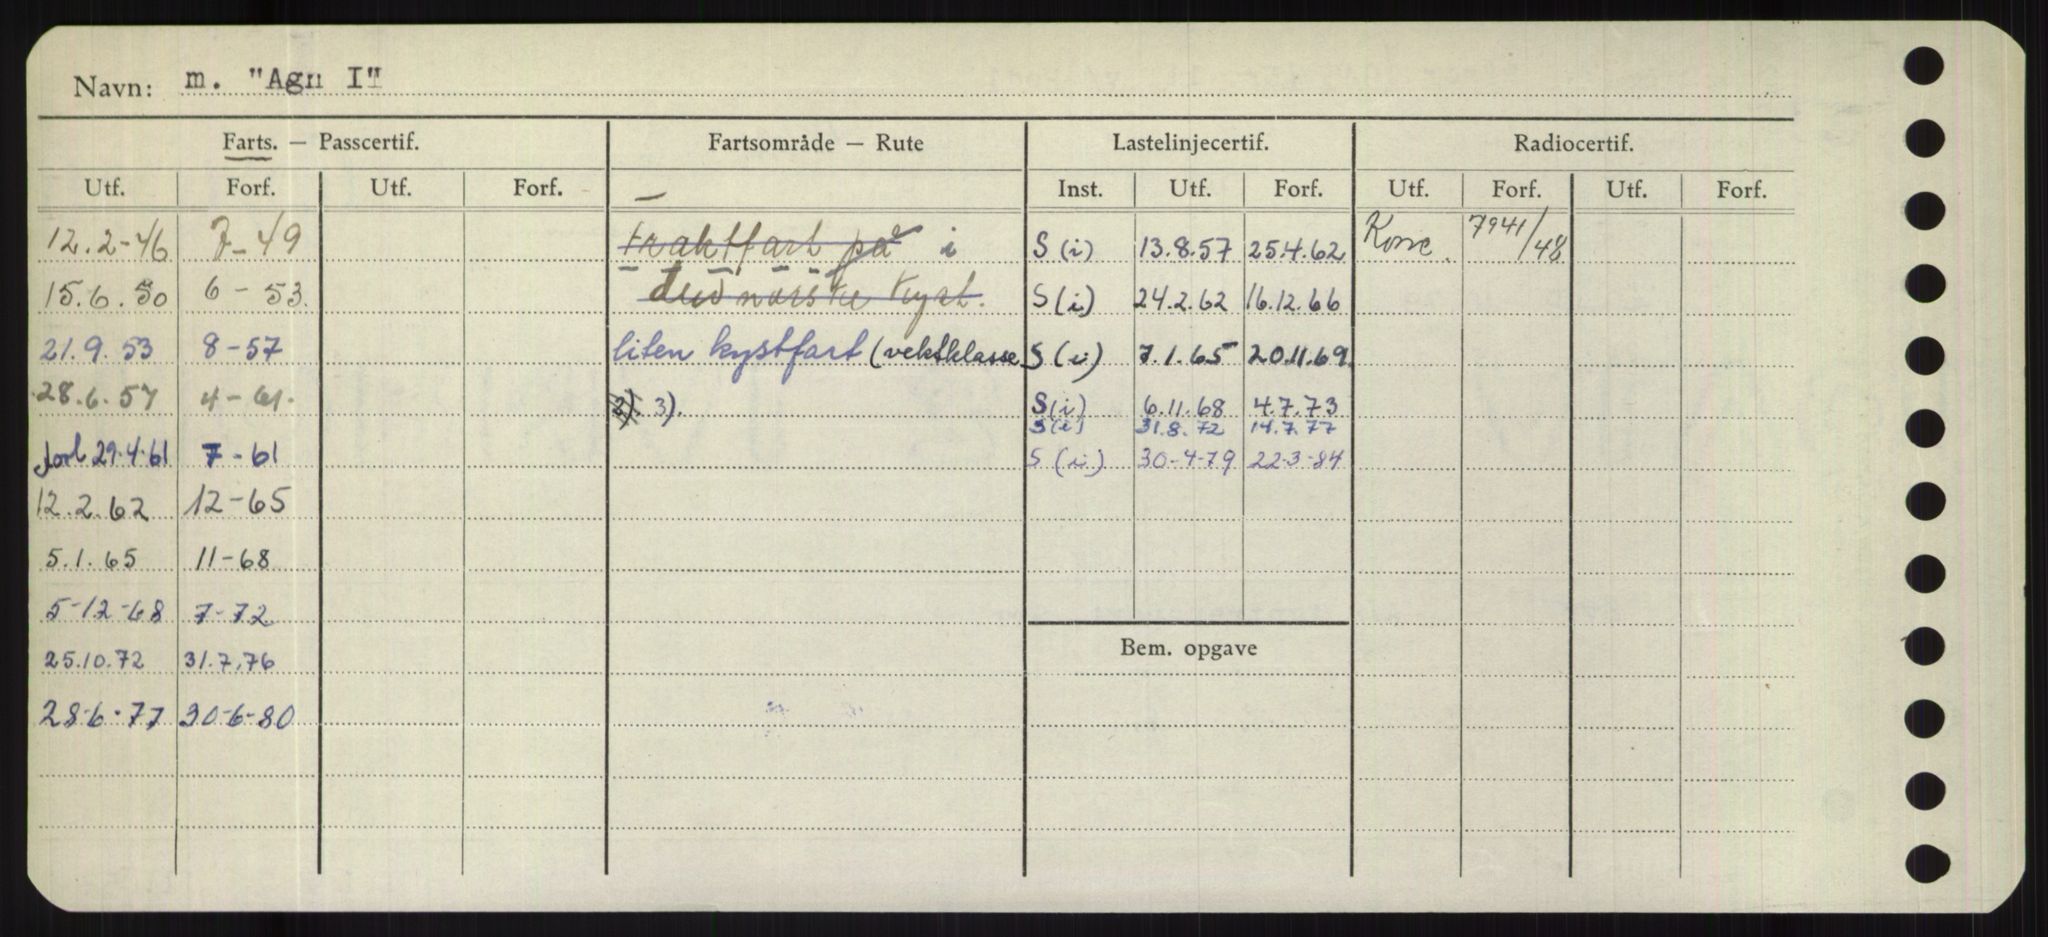 Navn: m. "Agn I"
Farts. — Passcertif. Fartsområde — Rute Lastelinjecertif. Radiocertif.
Utf. Forf. Utf. Forf. Inst. Utf. Forf. Utf. Forf. Utf. Forf.
12.2-46 7-49 fraktfart på i S (i) 13.8.57 25.4.62 Korre. 7941/48
15.6.50 6-53. den norske kyst. S (i) 24.2.62 16.12.66
21.9.53 8-57 liten kystfart (vektklasse S (i) 7.1.65 20.11.69.
28.6.57 4-61. 2) 3). S (i) 6.11.68 4.7.73
S (i) 31.8.72 14.7.77
29.4.61 7-61 S (i) 30-4-79 22-3-84
12.2.62 12-65
5.1.65 11-68
5-12-68 7-72
Bem. opgave
25.10.72 31.7.76
28-6-77 30-6-80